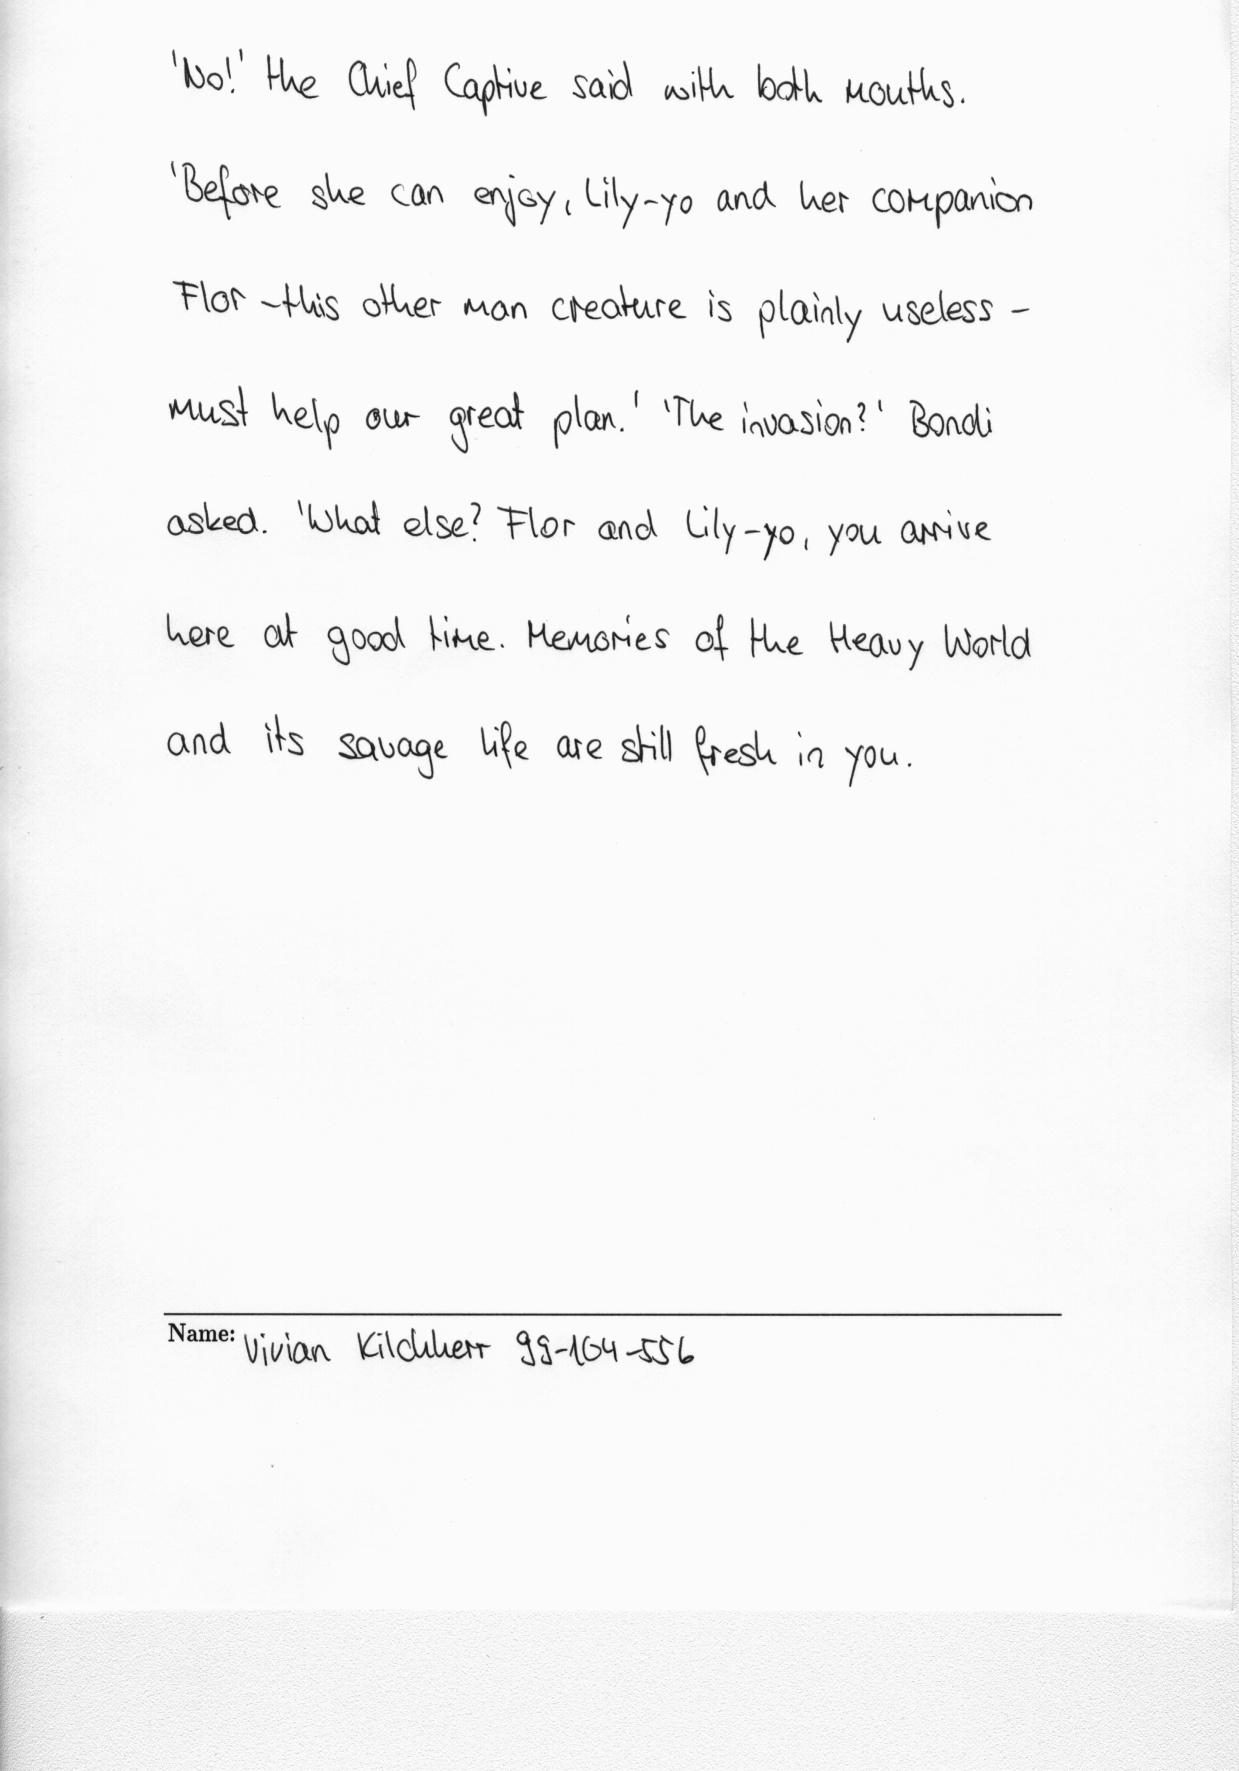 'No!' the Chief Captive said with both mouths.
'Before she can enjoy, Lily-yo and her companion
Flor - this other man creature is plainly useless -
must help our great plan.' 'The invasion?' Bondi
asked. 'What else? Flor and Lily-yo, you arrive
here at good time. Memories of the Heavy World
and its savage life are still fresh in you.
Name: Vivian Kilchherr 99-104-556